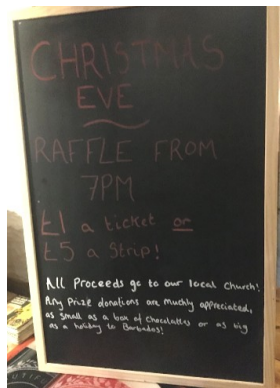 CHRISTMAS
EVE
RAFFLE FROM
7PM
£1 a ticket or
£5 a Strip!
All Proceeds go to our local Church!
Any Prize donations are muchly appreciated,
as small as a box of chocolates or as big
as a holiday to Barbados!